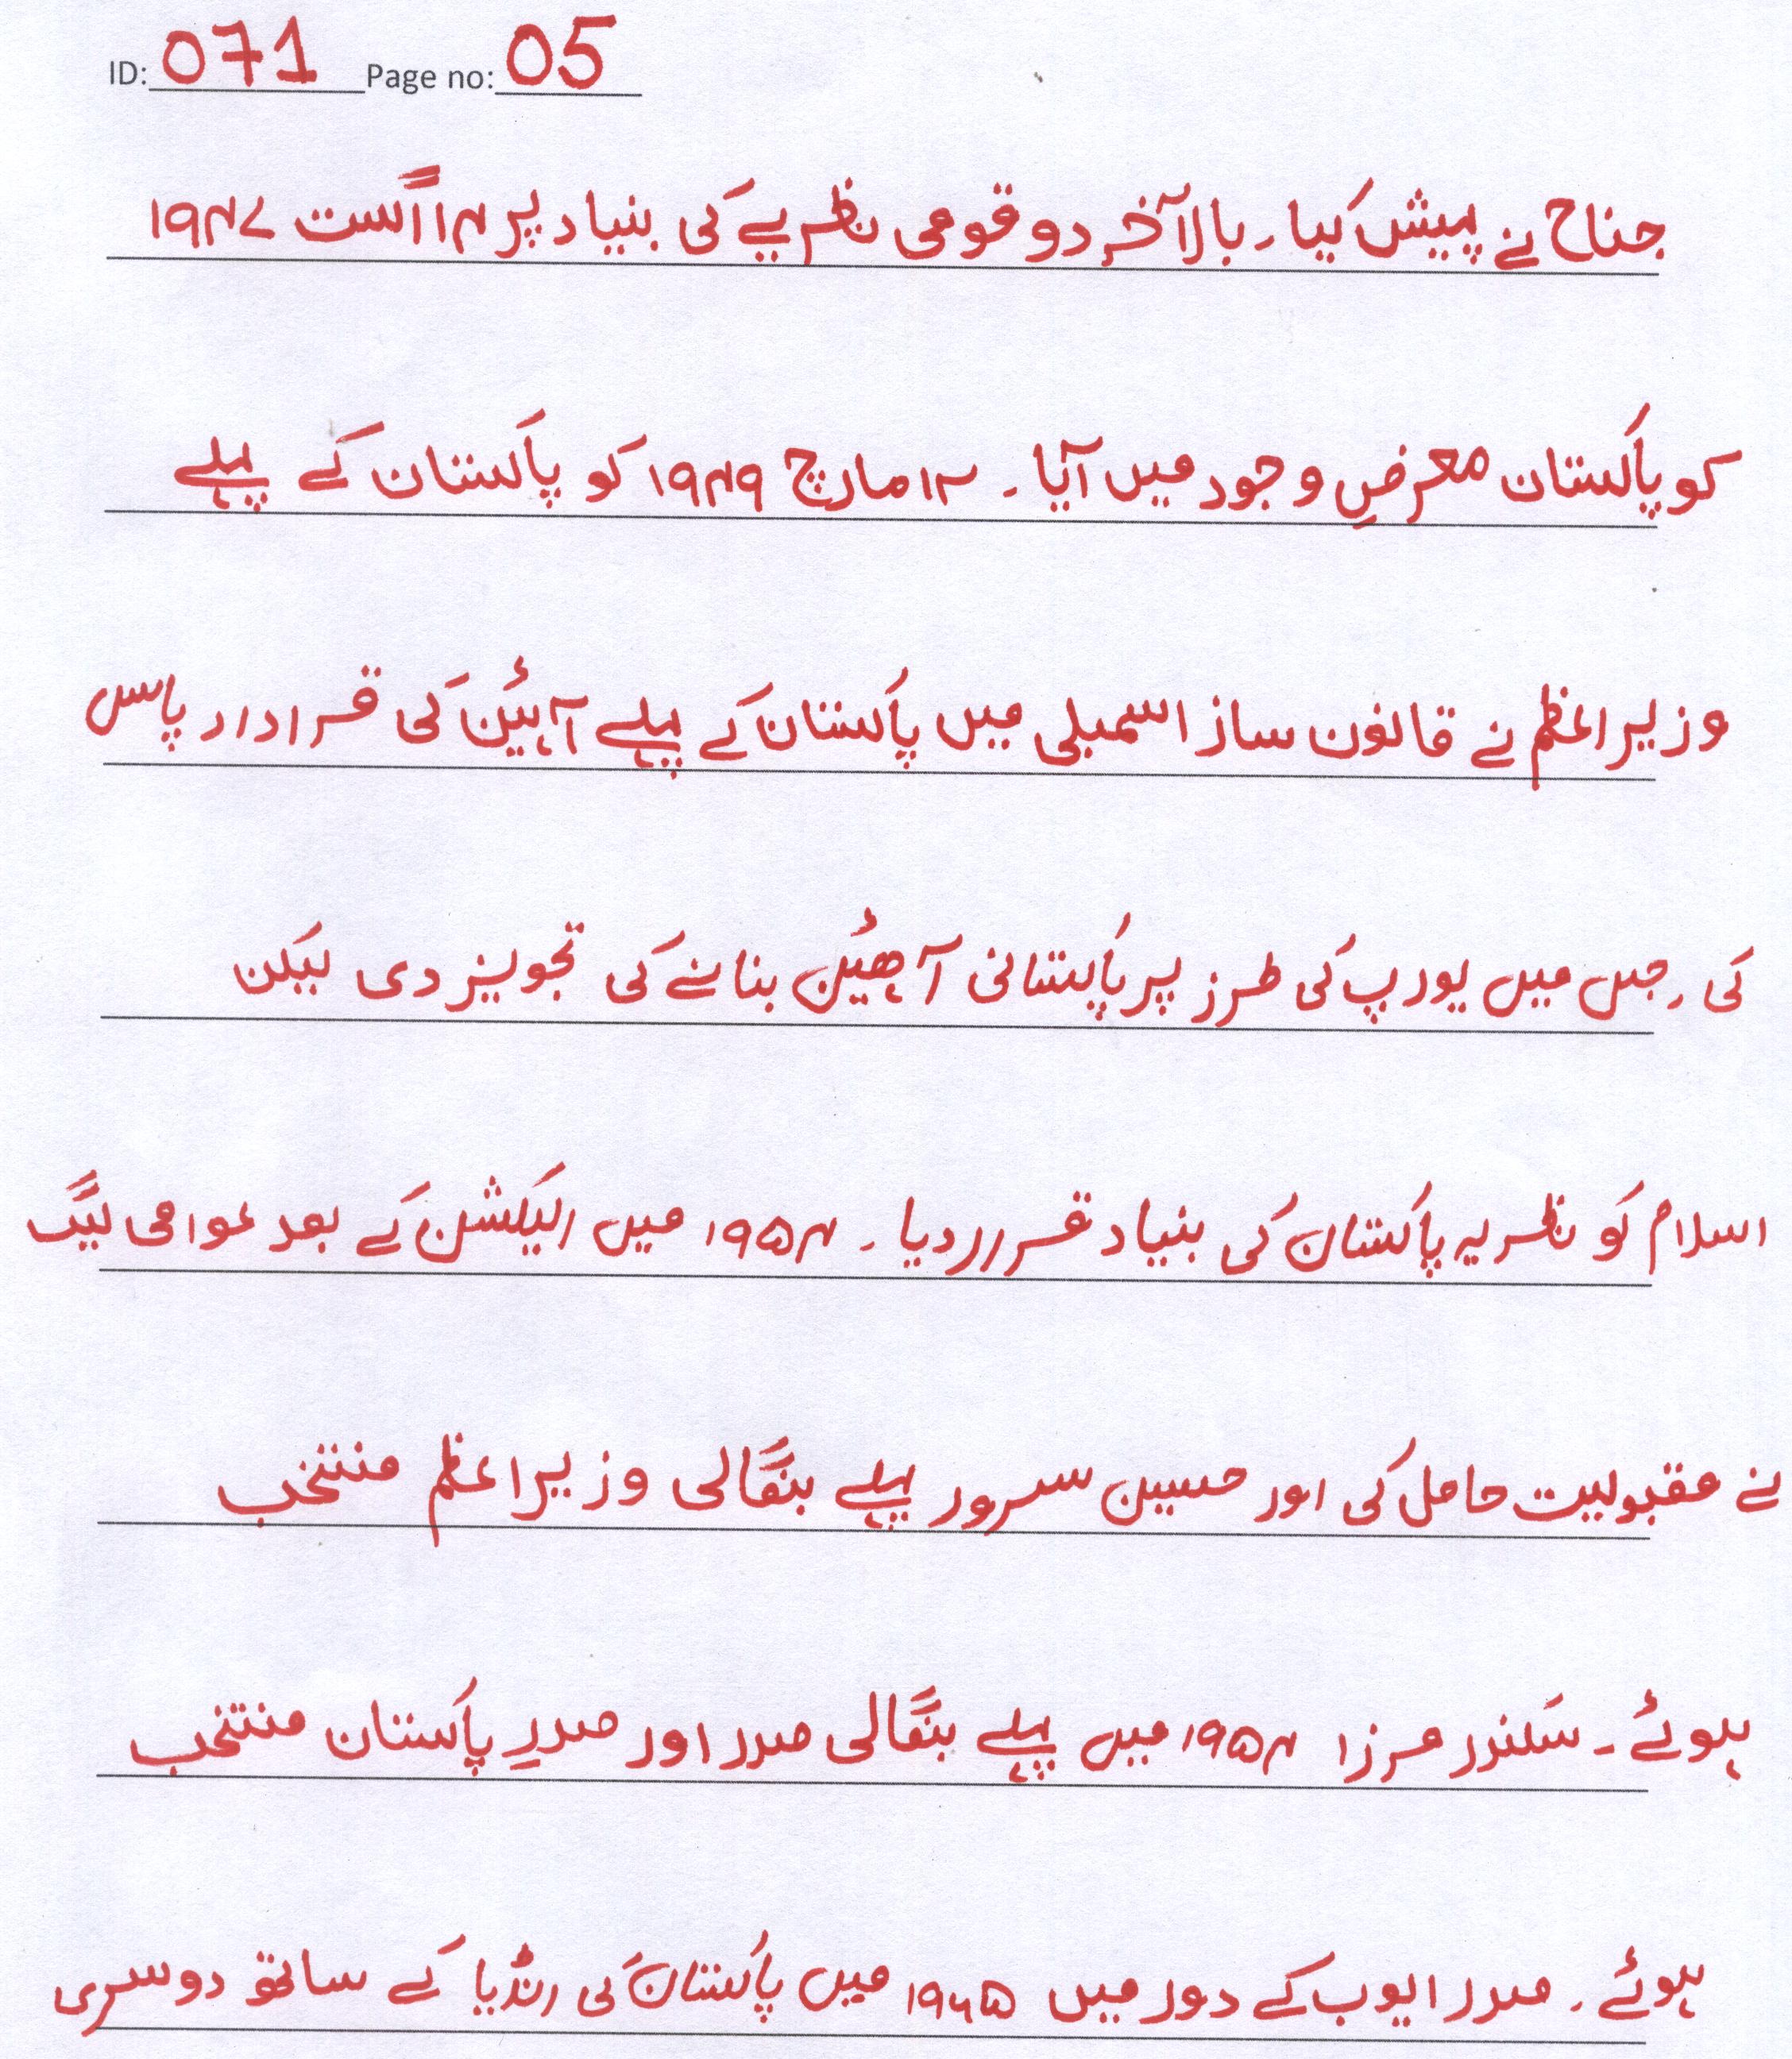 ID: 071 Page no: 05
جناح نے پیش کیا۔ بالاآخر دو قومی نظریے کی بنیاد پر ۱۴ اگست ۱۹۴۷
کو پاکستان معرضِ وجود میں آیا۔ ۱۲ مارچ ۱۹۴۹ کو پاکستان کے پہلے
وزیراعظم نے قانون ساز اسمبلی میں پاکستان کے پہلے آہئین کی قرارداد پاس
کی۔ جس میں یورپ کی طرز پر پاکستانی آھئین بنانے کی تجویز دی لیکن
اسلام کو نظریہ پاکستان کی بنیاد قرار دیا۔ ۱۹۵۴ میں الیکشن کے بعد عوامی لیگ
نے مقبولیت حاصل کی اور حسین سرور پہلے بنگالی وزیراعظم منتخب
ہوئے۔ سکندر مرزا ۱۹۵۴ میں پہلے بنگالی صدر اور صدرِ پاکستان منتخب
ہوئے۔ صدر ایوب کے دور میں ۱۹۶۵ میں پاکستان کی انڈیا کے ساتھ دوسری